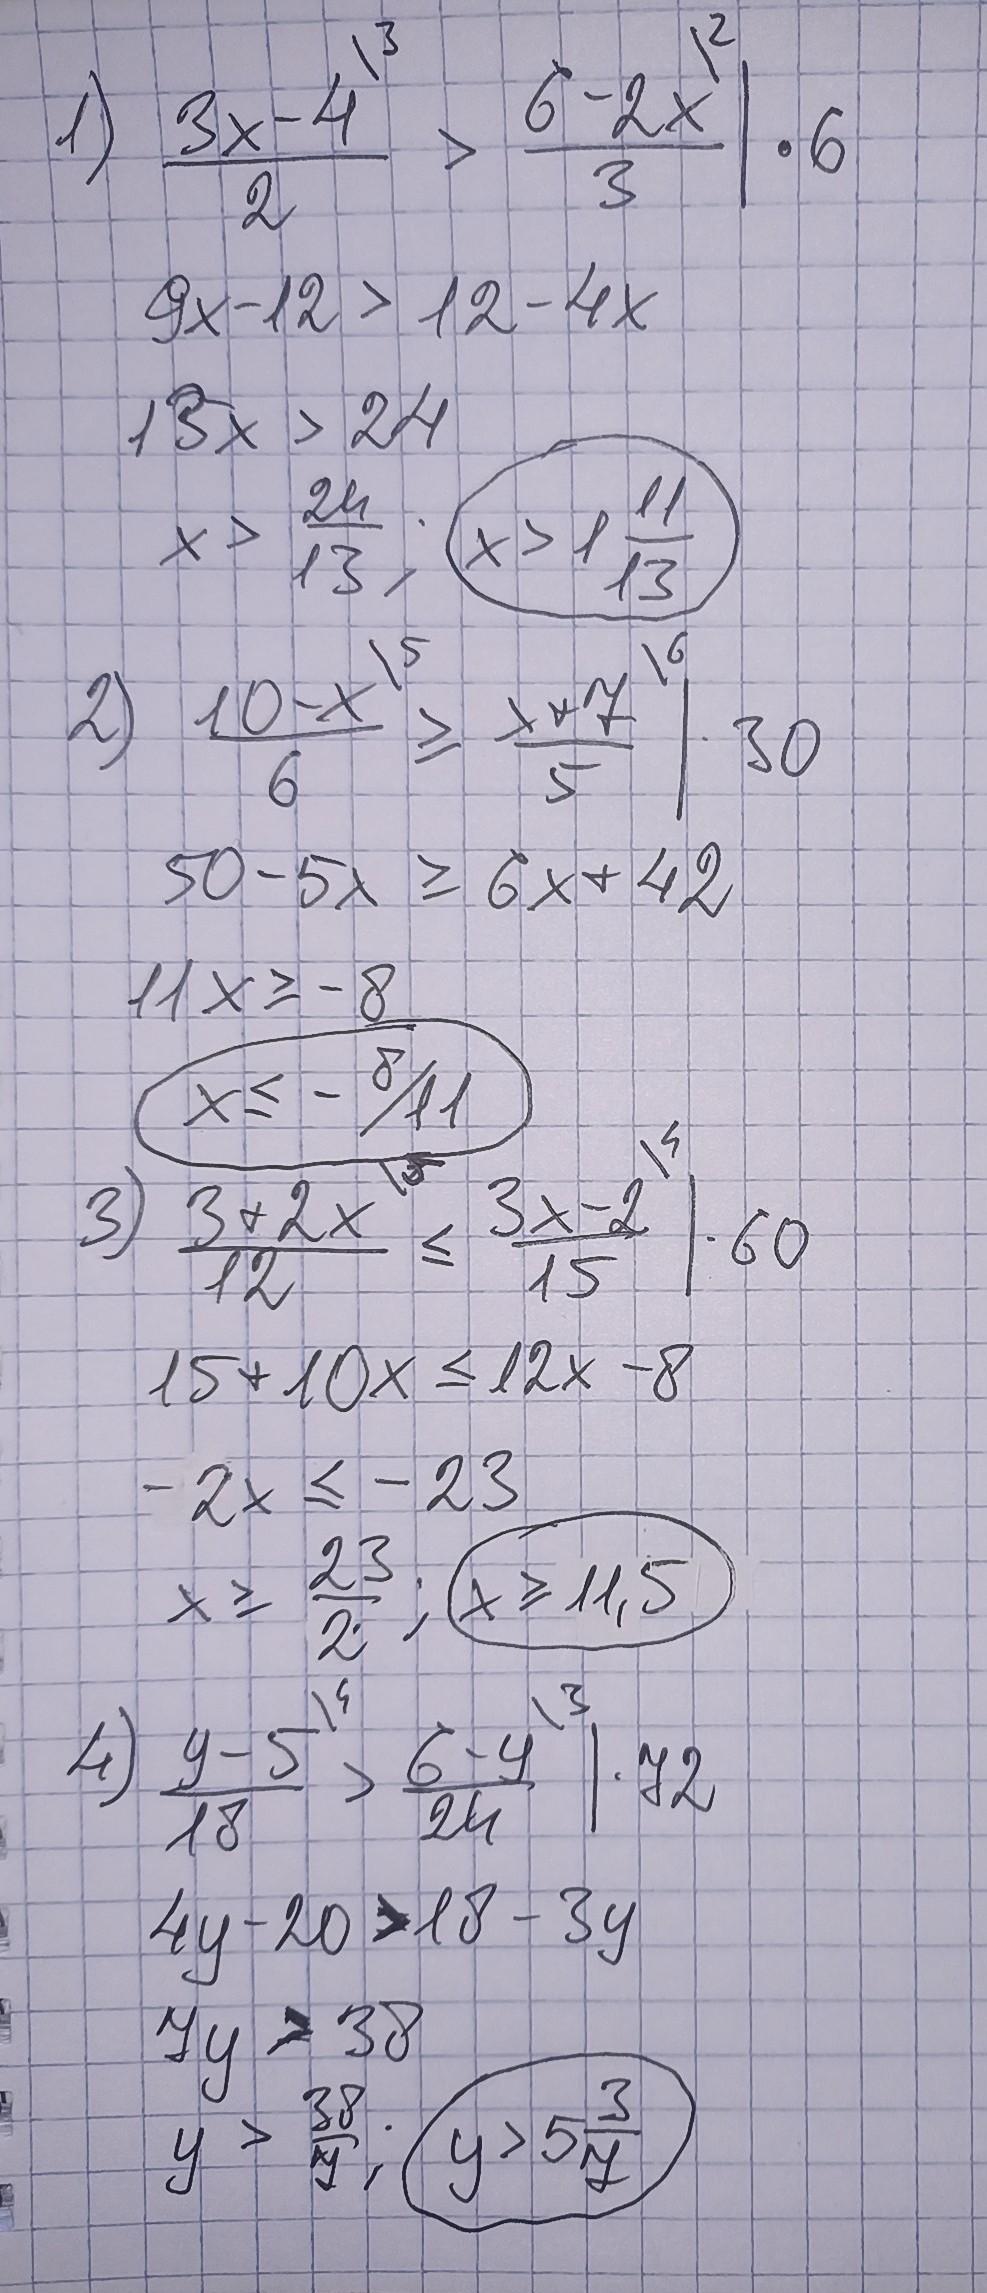 1) \frac{3x-4^{\backslash 3}}{2} > \frac{6-2x^{\backslash 2}}{3} | \cdot 6
9x-12 > 12-4x
13x > 24
x > \frac{24}{13}; x > 1\frac{11}{13}
2) \frac{10-x^{\backslash 5}}{6} ≥ \frac{x+7^{\backslash 6}}{5} | \cdot 30
50-5x ≥ 6x+42
11x ≥ -8
x ≤ -8/11
3) \frac{3+2x^{\backslash 5}}{12} ≤ \frac{3x-2^{\backslash 4}}{15} | \cdot 60
15+10x ≤ 12x-8
-2x ≤ -23
x ≥ \frac{23}{2}; x ≥ 11,5
4) \frac{y-5^{\backslash 4}}{18} > \frac{6-y^{\backslash 3}}{24} | \cdot 72
4y-20 > 18-3y
7y > 38
y > \frac{38}{7}; y > 5\frac{3}{7}